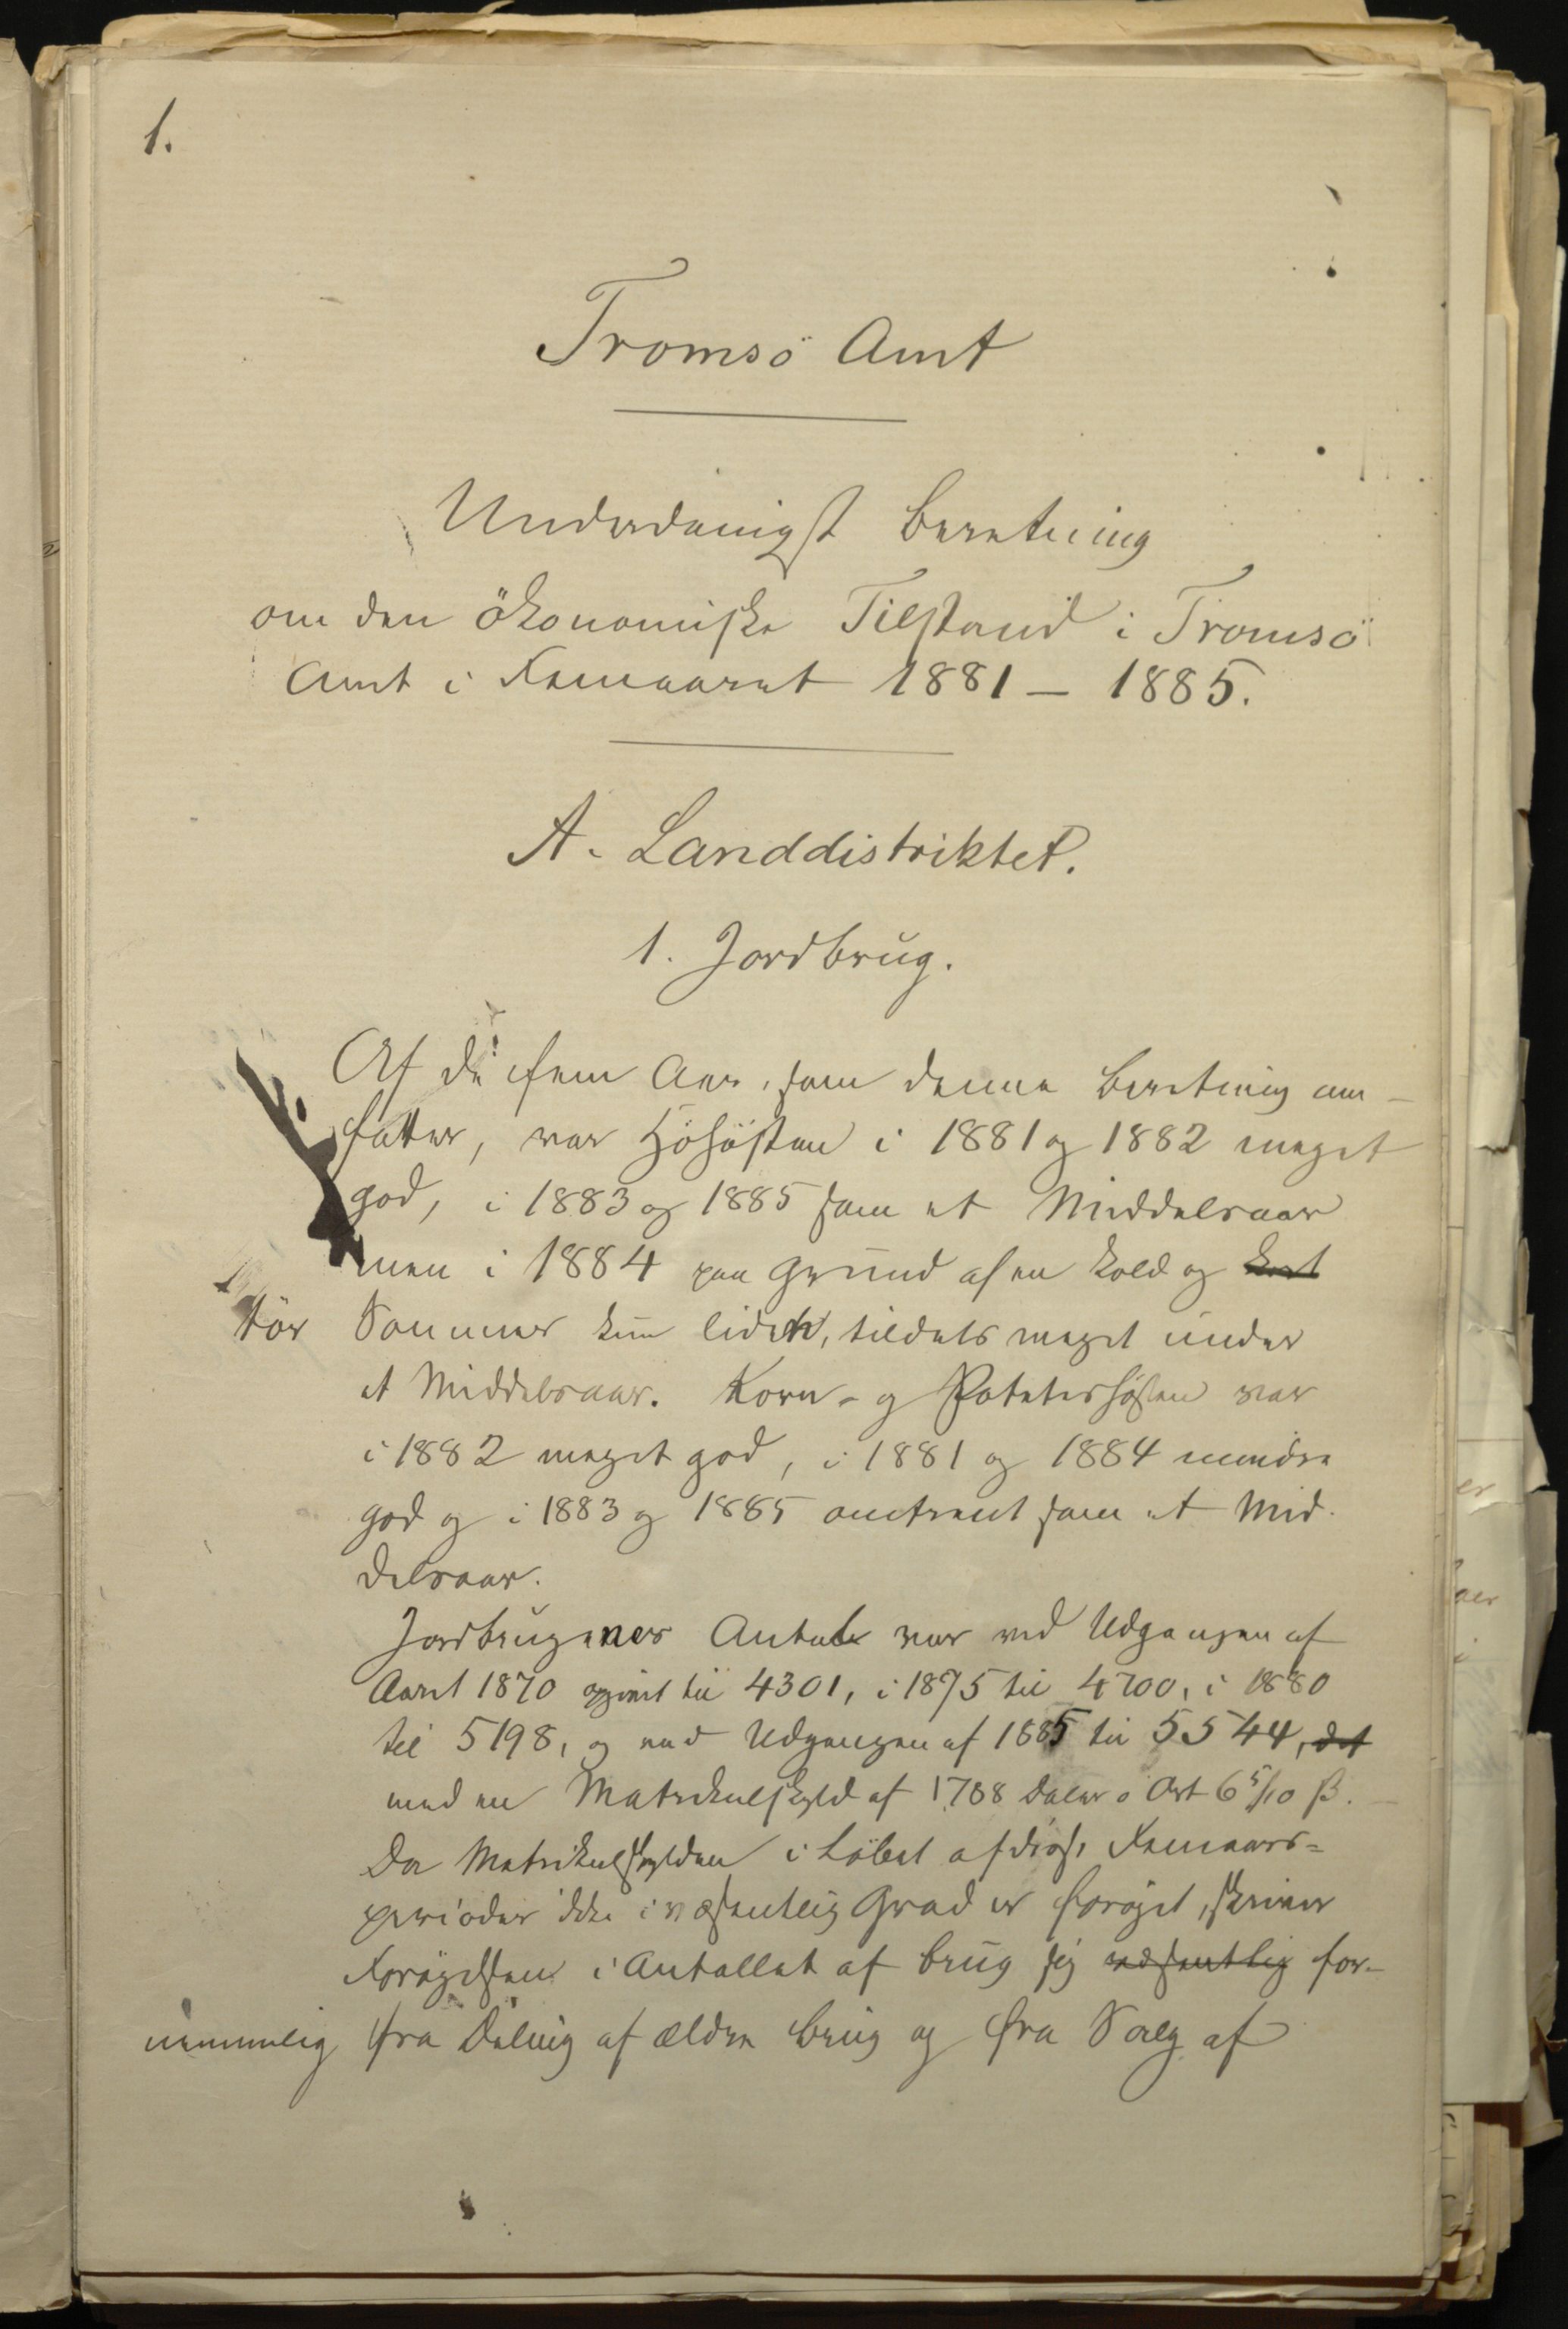 1.
Tromsö Amt
Underdanigst Beretning
om den ökonomiske Tilstand i Tromsö
Amt i Femaaret 1881 – 1885.
A. Landdistriktet.
1. Jordbrug.
Af de fem Aar, som denne Beretning om-
fatter, var Höhösten i 1881 og 1882 meget
god, i 1883 og 1885 som et Middelsaar
men i 1884 paa Grund af en kold og kort
tör Sommer kun lidet, tildels meget under
et Middelsaar. Korn- og Poteteshösten var
i 1882 meget god, i 1881 og 1884 mindre
god og i 1883 og 1885 omtrent som et Mid-
delsaar.
Jordbrugenes Antal var ved Udgangen af
Aaret 1870 opgivet til 4301, i 1875 til 4700, i 1880
til 5198, og ved Udgangen af 1885 til 5544, det
med en Matrikulskyld af 1708 Daler 0 Ort 6 5/10 ß.
Da Matrikulskylden i Löbet af disse Femaars-
perioder ikke i væsentlig Grad er foröget, skriver
Forögelsen i Antallet af Brug sig væsentlig for-
nemmelig fra Deling af ældre Brug og fra Salg af